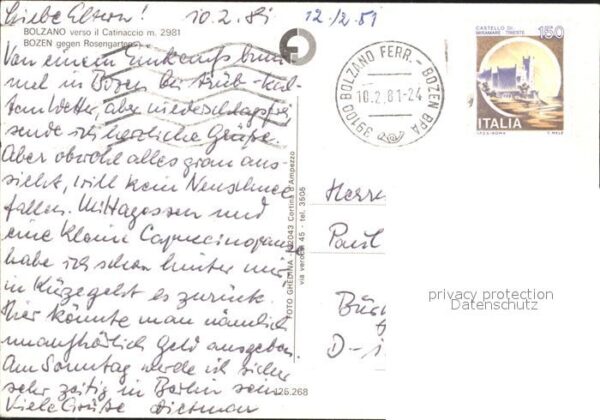 Liebe Eltern! 10.2.81 12/2.81
BOLZANO verso il Catinaccio m. 2981
BOZEN gegen Rosengarten
Von einem Einkaufsbum-
mel in Bozen bei trüb-kal-
tem Wetter, aber niederschlagsfrei
sende ich herzliche Grüße.
Aber obwohl alles grau aus-
sieht, will kein Neuschnee
fallen. Mittagessen und
eine kleine Capuccinopause
habe ich schon hinter mir
in Kürze geht es zurück.
Hier könnte man nämlich
unaufhörlich Geld ausgeben
Am Sonntag werde ich sicher
sehr zeitig in Berlin sein
Viele Grüße Dietmar
FOTO GHEDINA - 32043 Cortina d'Ampezzo
via verocai 45 - tel. 3505
25.268
39100 BOLZANO FERR. - BOZEN BFA
10.2.81-24
CASTELLO DI
MIRAMARE TRIESTE
150
ITALIA
Herrn
Paul
D-1
privacy protection
Datenschutz